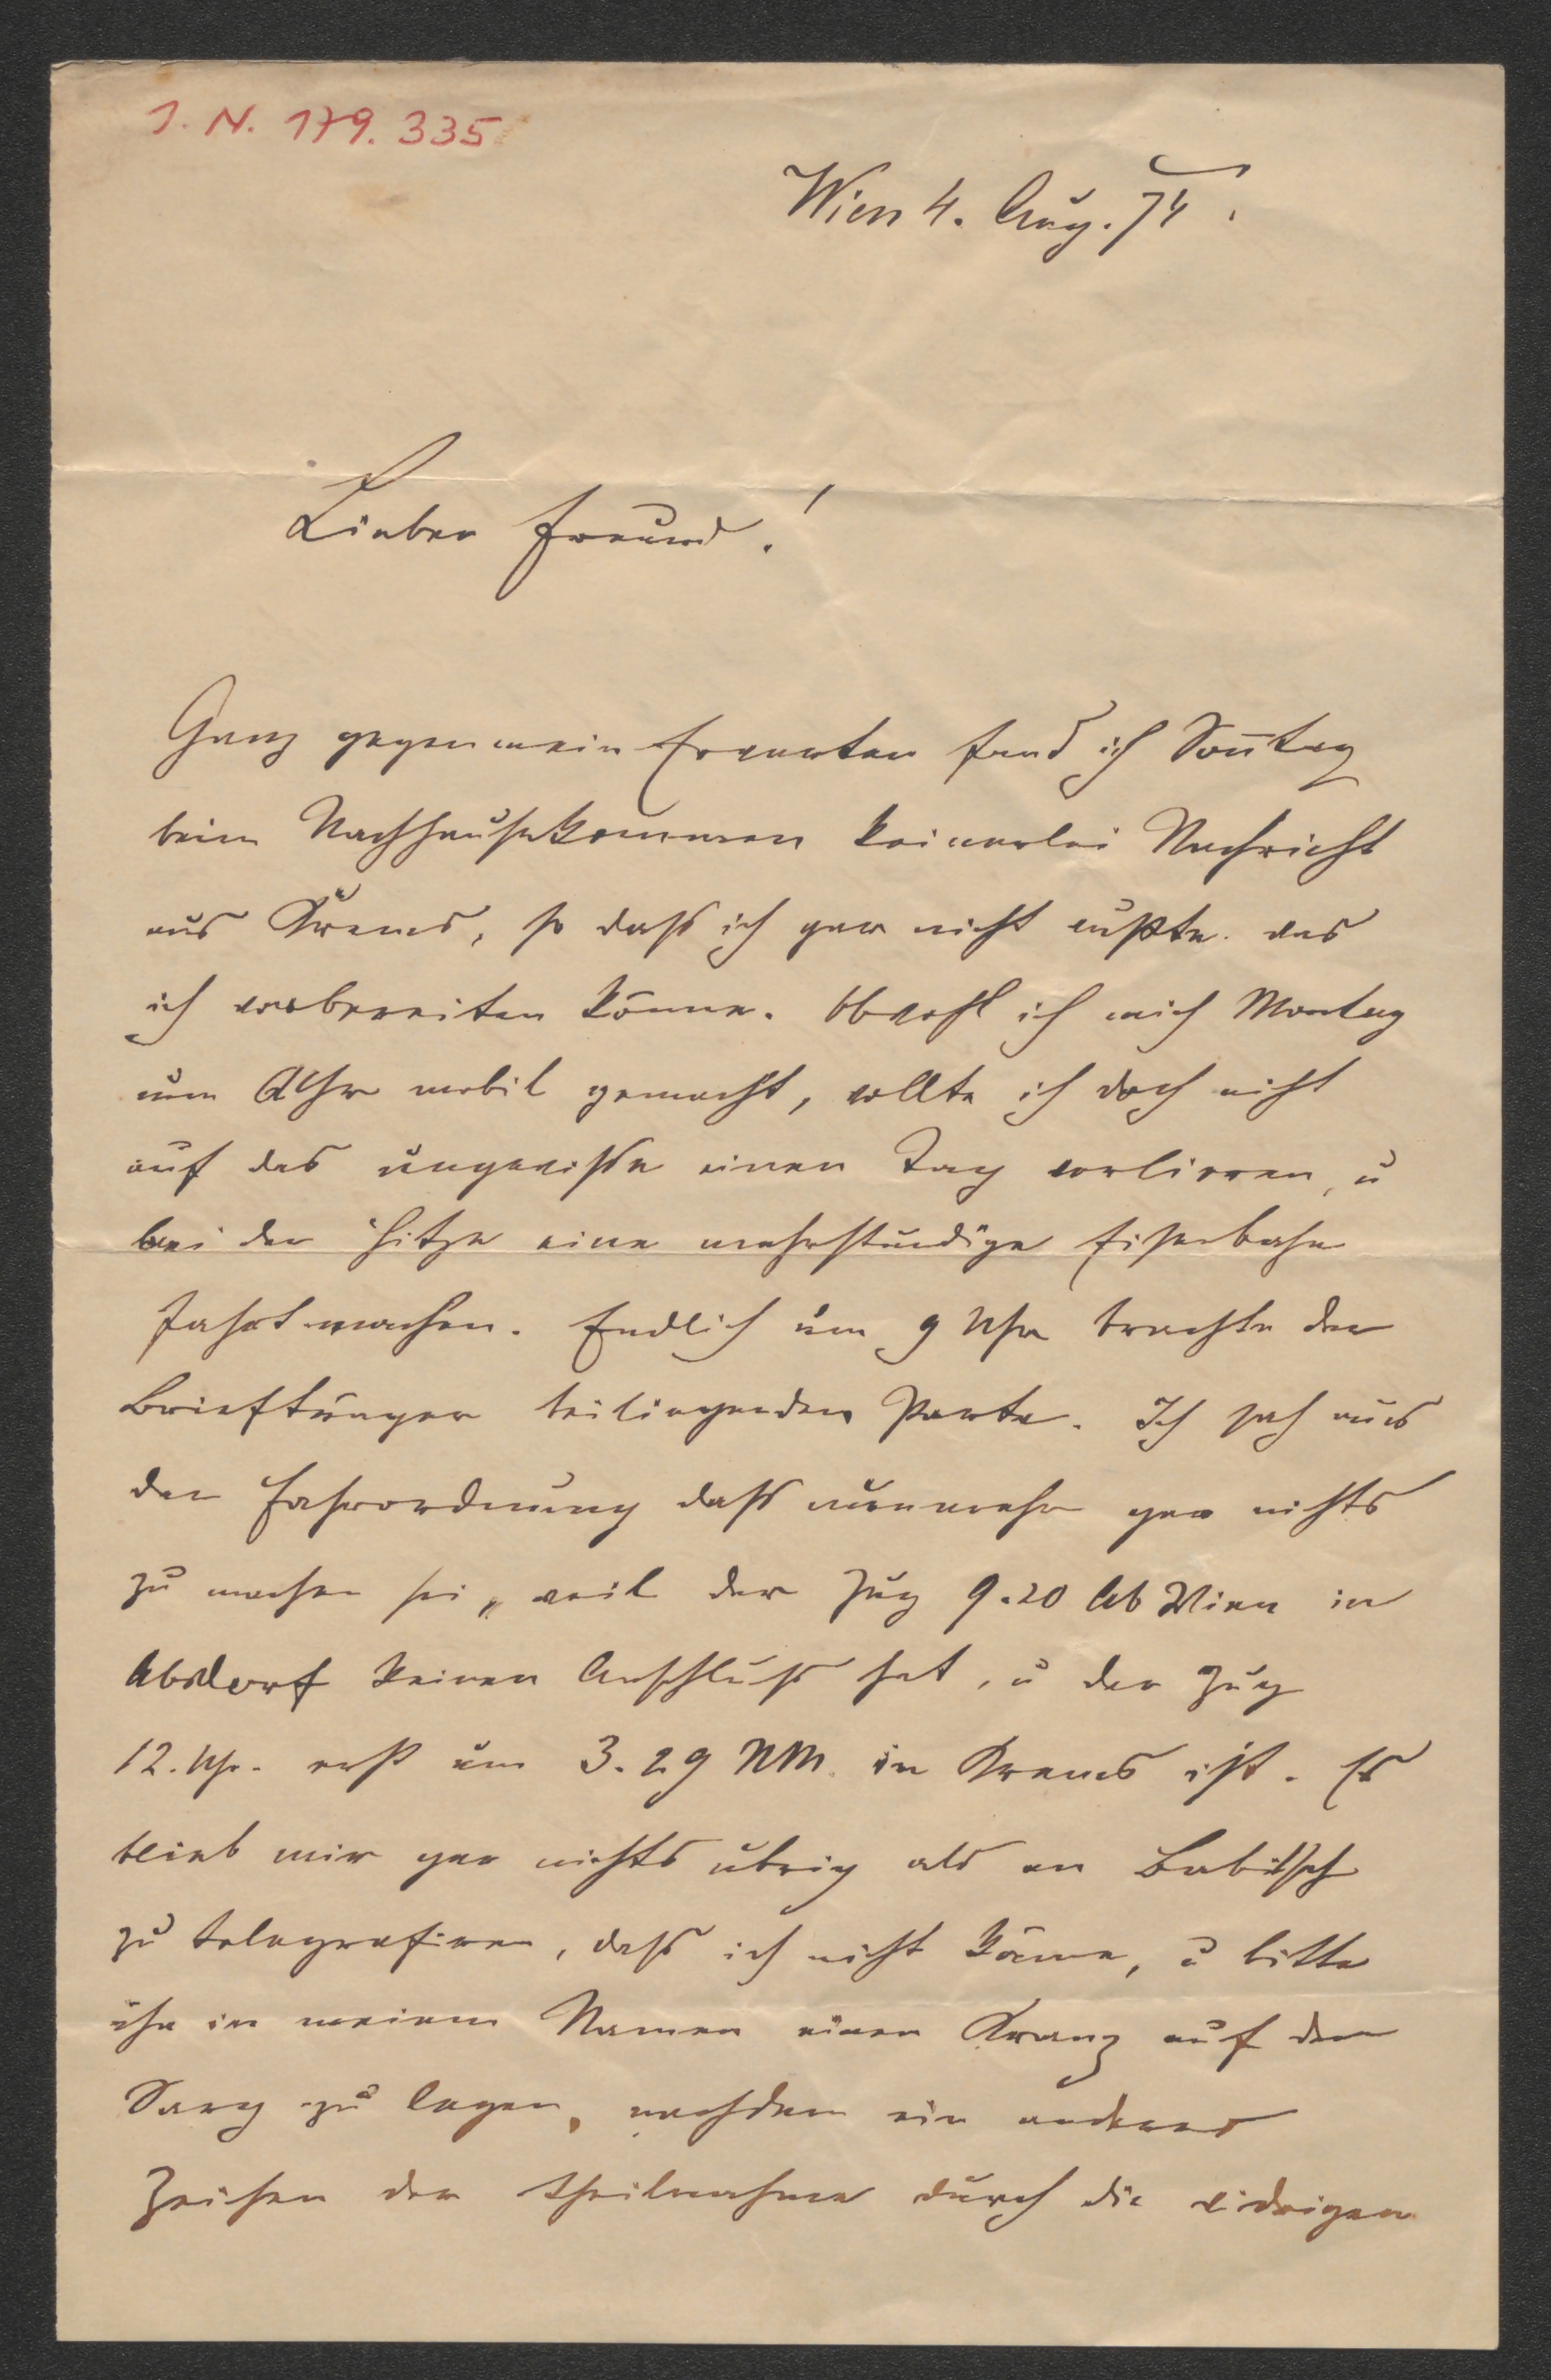 I. N. 179.335
Wien 4. Aug. 74.
Lieber Freund!
Ganz gegen mein Erwarten fand ich Son̄tag
beim Nachhausekommen keinerlei Nachricht
aus Krems, so daß ich gar nicht wußte was
ich vorbereiten könne. Obwohl ich mich Montag
um Uhr mobil gemacht, wollte ich doch nicht
auf das ungewisse einen Tag verlieren, u
bei der Hitze eine mehrstündige Eisenbahn
fahrt machen. Endlich um 9 Uhr brachte der
Briefträger beiliegenden Parte. Ich sah aus
der Fahrordnung daß nunmehr gar nichts
zu machen sei, weil der Zug 9.20 Ab Wien in
Absdorf keinen Anschluß hat, u der Zug
12. Uhr. erst um 3.29 NM. in Krems ist. Es
blieb mir gar nichts übrig als an
zu telegrafiren, daß ich nicht käme, u bitte
ihn in meinem Namen einen Kranz auf den
Sarg zu legen, nachdem ein anderes
Zeichen der Theilnahme durch die widrigen